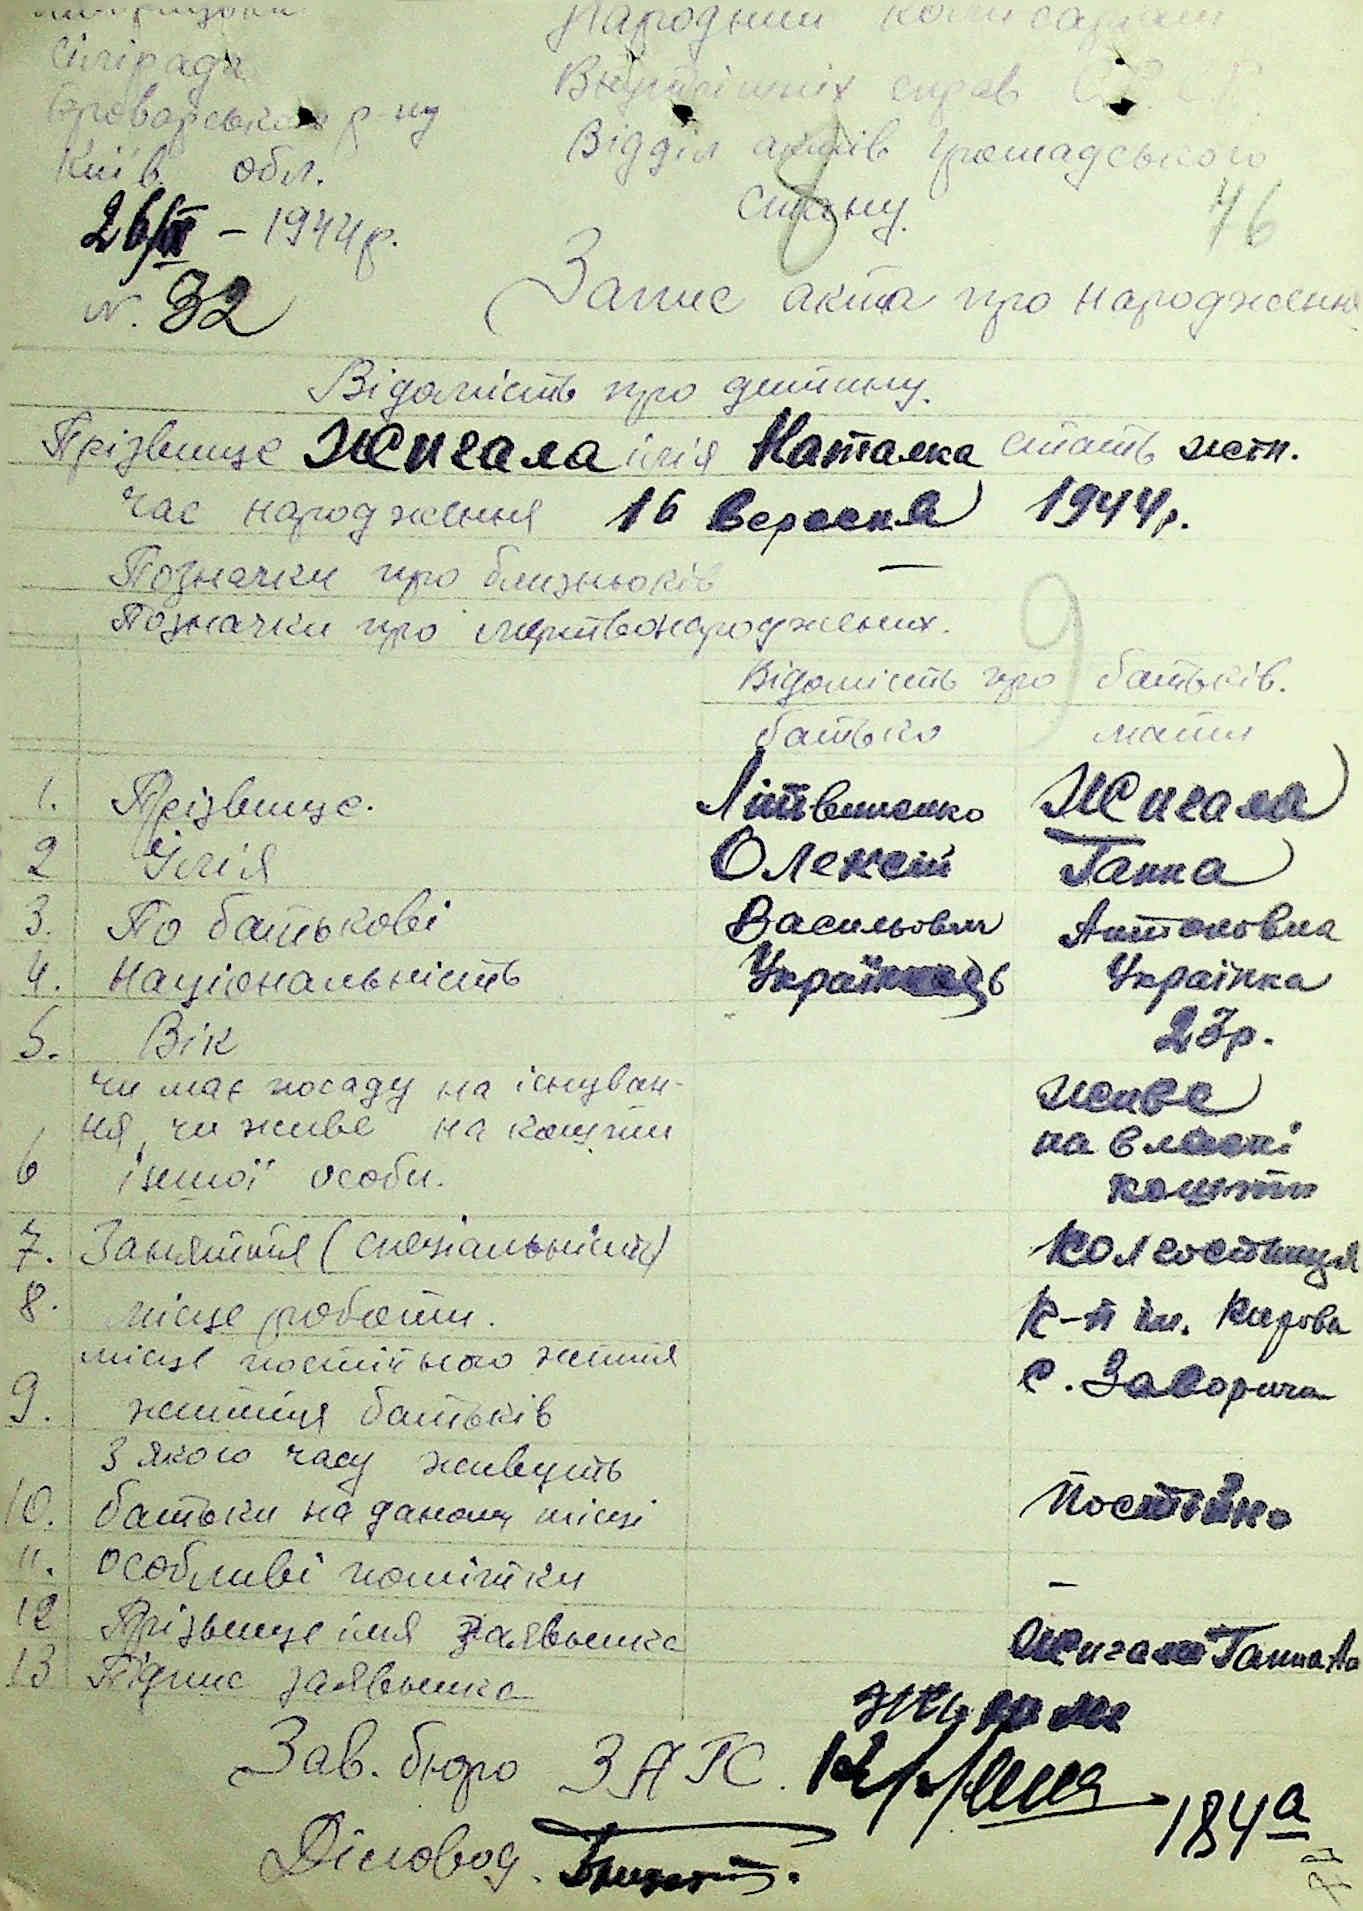 сільради
Броварського р-ну
Київ. обл.
26/IX – 1944 р.
N. 32
Народний комісаріат
Внутрішніх справ
Відділ актів громадського
стану.
46
Запис акта про народження
Відомість про дитину.
Прізвище Жигала імія Наталка стать жін.
час народження 16 вересня 1944 р.
Позначки про близнюків —
Позначки про мертвонароджених.
9
Відомість про батьків.
батько мати
1. Прізвище. Літвиненко Жигала
2 Імія Олексій Ганна
3. По батькові Васильович Антоновна
4. Національність Українець Українка
5. Вік 23 р.
чи має посаду на існуван-
ня, чи живе на кошти
6 іншої особи. живе на власні кошти
7. Заняття (спеціальність) колгоспниця
8. місце роботи. к-п ім. Кирова
місце постійного життя
9. життя батьків с. Заворичи
з якого часу живуть
10. батьки на даному місці Постійно
11. особливі помітки –
12 Прізвище імя заявника Жигала Ганна Ан
13 Підпис заявника Жигала
Зав. бюро ЗАГС.
Діловод.
184а